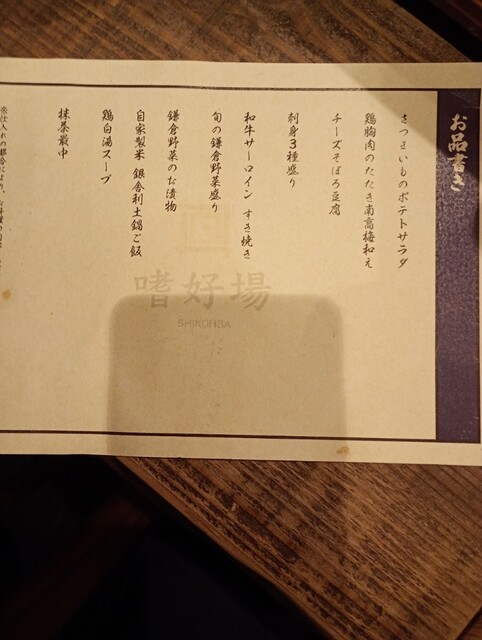 お品書き
さつまいものポテトサラダ
鶏胸肉のたたき南高梅和え
チーズそぼろ豆腐
刺身3種盛り
和牛サーロイン すき焼き
旬の鎌倉野菜盛り
鎌倉野菜のお漬物
自家製米 銀舎利土鍋ご飯
鶏白湯スープ
抹茶最中
※仕入れの都合により、お料理の
嗜好場
SHIKOHBA